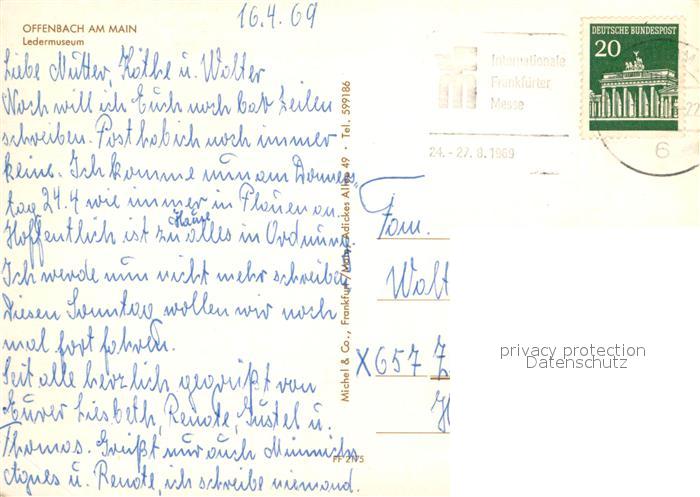 16.4.69
OFFENBACH AM MAIN
Ledermuseum
Liebe Mutter, Käthe u. Walter
Noch will ich Euch noch paar Zeilen
schreiben. Post hab ich noch immer
keine. Ich komme nun am Donners
tag 24.4 wie immer in Plauen an.
Hoffentlich ist zu Hause alles in Ordnung.
Ich werde nun nicht mehr schreiben
Diesen Sonntag wollen wir noch
mal fort fahren.
Seit alle herzlich gegrüßt von
Eurer Liesbeth, Renate, Gustel u.
Thomas. Grüßt nur auch
Agnes u. Renate, ich schreibe niemand.
Michel & Co., Frankfurt/Main, Adickes Allee 49 · Tel. 599186
FF 2175
Internationale
Frankfurter
Messe
24. - 27. 8. 1969
DEUTSCHE BUNDESPOST
20
6
Fam.
Walt
X657 Z
privacy protection
Datenschutz